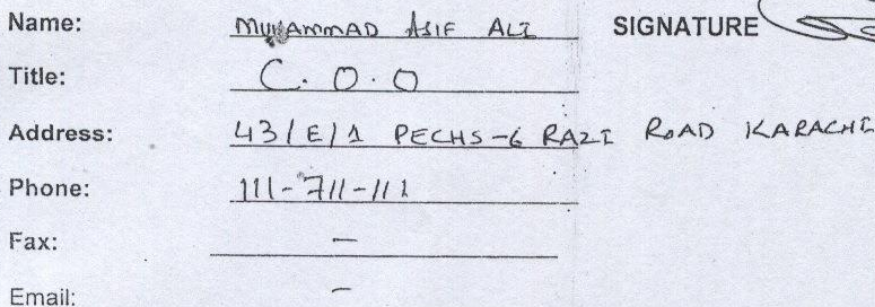 Name: MUHAMMAD ASIF ALI SIGNATURE
Title: C.O.O
Address: 43/E/1 PECHS-6 RAZI ROAD KARACHI
Phone: 111-711-111
Fax: -
Email: -